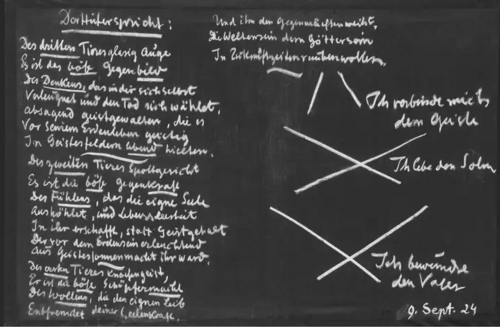 Der Hüter spricht:
Des dritten Tieres glasig Auge
Es ist das böse Gegenbild
Des Denkens, das in dir sich selbst
Verleugnet und den Tod sich wählet,
Absagend Geistgewalten, die es
Vor seinem Erdenleben geistig
In Geistesfeldern lebend hielten.
Des zweiten Tieres Spottgesicht
Es ist die böse Gegenkraft
Des Fühlens, das die eigne Seele
Aushöhlet, und Lebensleerheit
In ihr erschafft, statt Geistgehalt
Der vor dem Erdensein erleuchtend
Aus Geistessonnenmacht ihr ward.
Des ersten Tieres Knochengeist,
Er ist die böse Schöpfermacht
Des Wollens, die den eignen Leib
Entfremdet deiner Seelenkraft
Und ihn den Gegenmächten weiht,
Die Weltensein dem Göttersein
In Zukunftzeiten rauben wollen.
Ich verbinde mich
dem Geiste
Ich lebe den Sohn
Ich bewundre
den Vater
9. Sept. 24